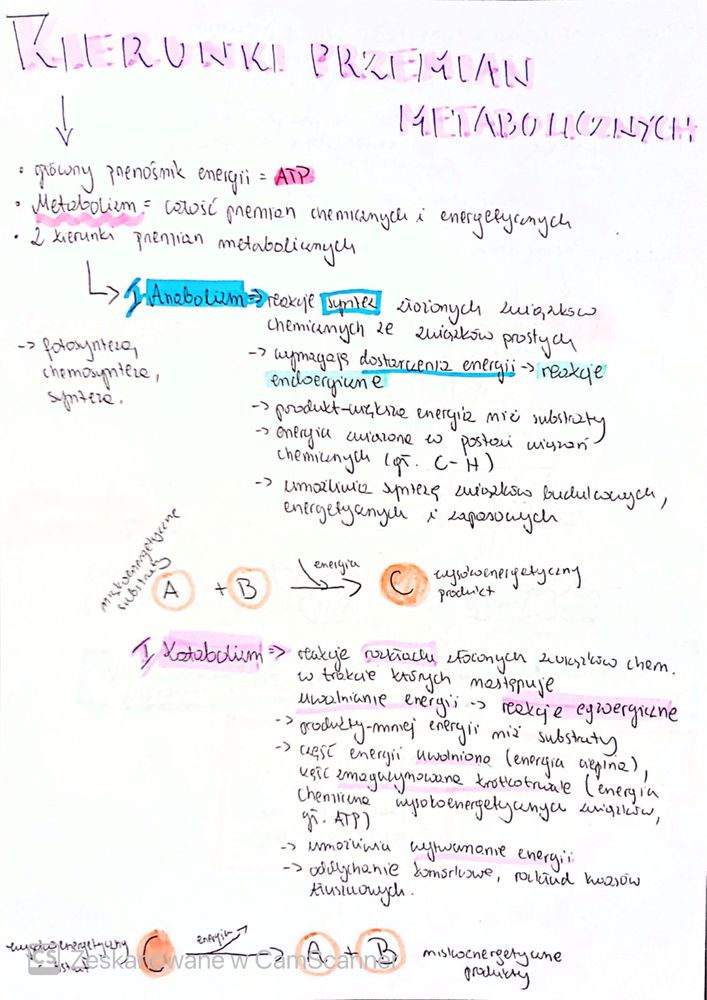 KIERUNKI PRZEMIAN
METABOLICZNYCH
• główny przenośnik energii = ATP
• Metabolizm = całość przemian chemicznych i energetycznych
• 2 kierunki przemian metabolicznych
I Anabolizm => reakcje syntez złożonych związków
chemicznych ze związków prostych
-> wymagają dostarczenia energii -> reakcje
endoergiczne
-> fotosynteza,
chemosynteza,
synteza.
-> produkt-większa energia niż substraty
-> energia związana w postaci wiązań
chemicznych (gł. C-H)
-> umożliwia syntezę związków budulcowych,
energetycznych i zapasowych
niskoenergetyczne
substraty
A + B
energia
C
wysokoenergetyczny
produkt
I Katabolizm => reakcje rozkładu złożonych związków chem.
w trakcie których następuje
uwalnianie energii -> reakcje egzoergiczne
-> produkty-mniej energii niż substraty
-> część energii uwolniona (energia cieplna),
część zmagazynowana krótkotrwale (energia
chemiczna wysokoenergetycznych związków,
gł. ATP)
-> umożliwia wytwarzanie energii
-> oddychanie komórkowe, rozkład kwasów
tłuszczowych.
wysokoenergetyczny
C
energia
A + B
niskoenergetyczne
produkty
CS Zeskanowane w CamScanner